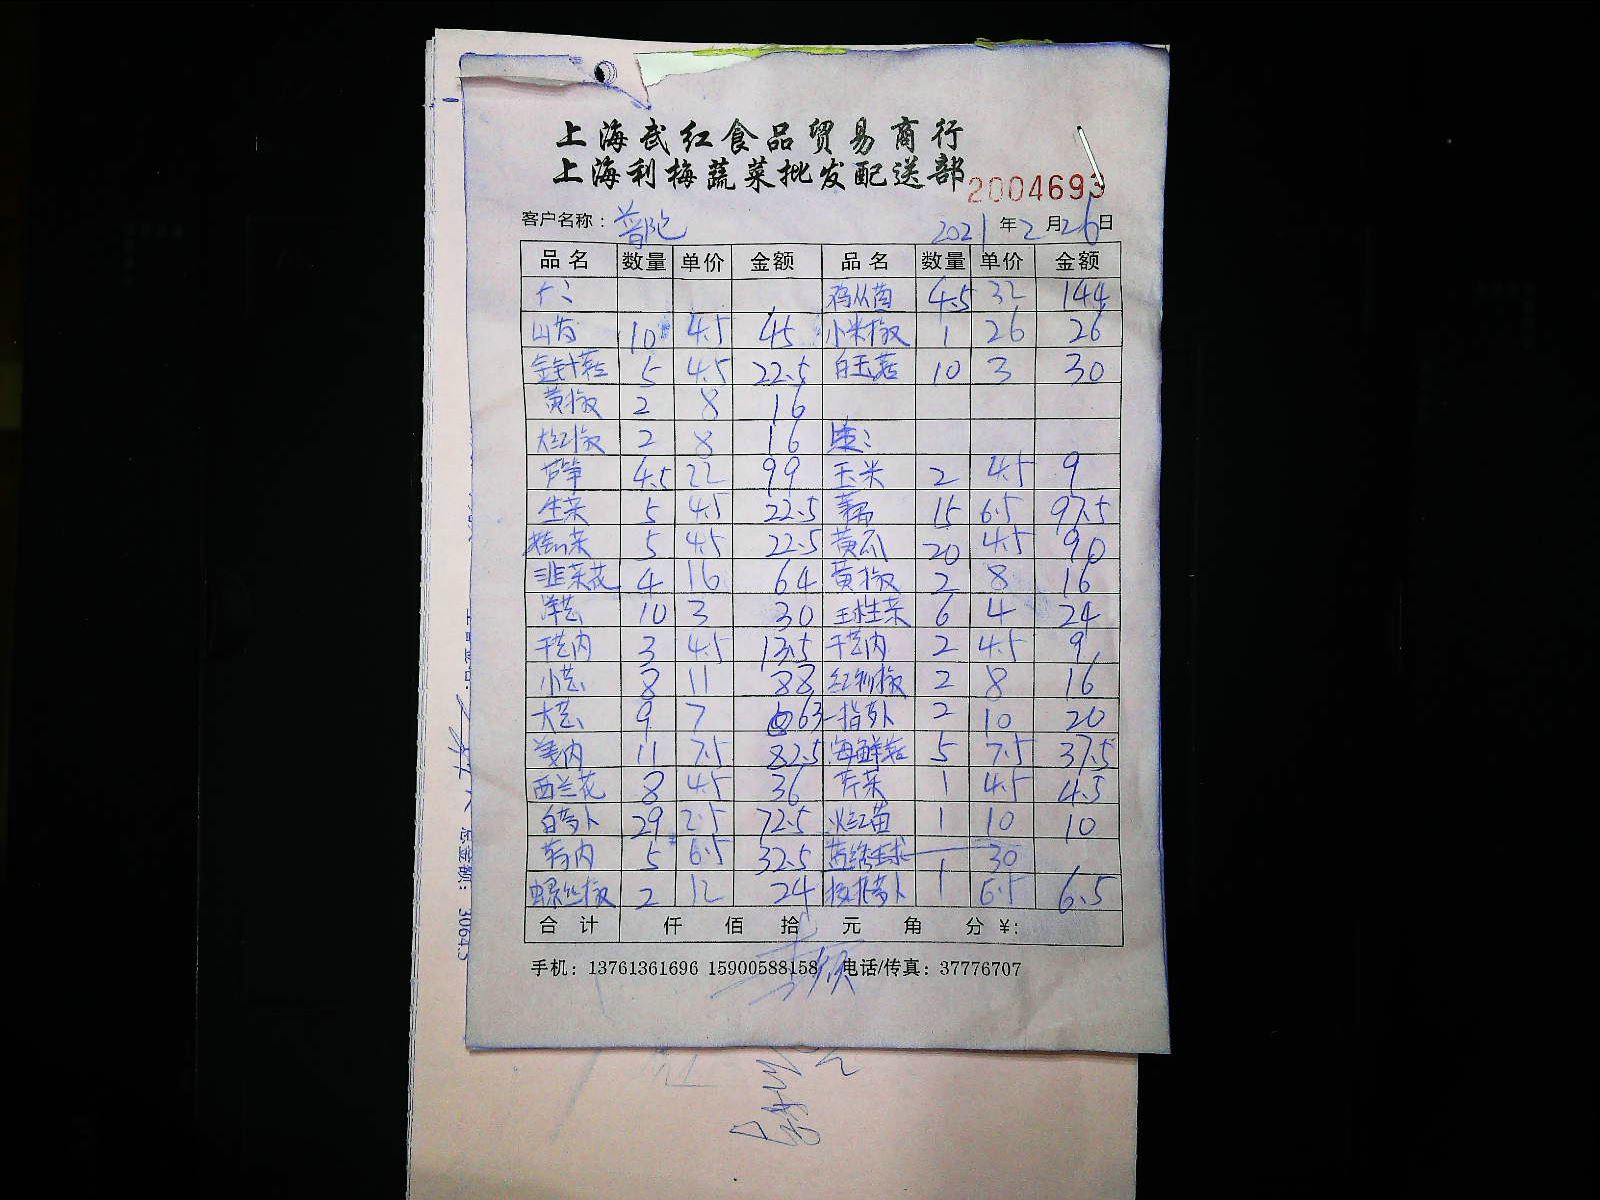 上海武红食品贸易商行
上海利梅蔬菜批发配送部
2004693
客户名称：普陀 2021年2月26日
品名 数量 单价 金额 品名 数量 单价 金额
4.5 32 144
山药 10 4.5 45 小米椒 1 26 26
金针菇 5 4.5 22.5 白玉菇 10 3 30
黄椒 2 8 16
大红椒 2 8 16
芦笋 4.5 22 99 玉米 2 4.5 9
生菜 5 4.5 22.5 15 6.5 97.5
5 4.5 22.5 黄瓜 20 4.5 90
韭菜花 4 16 64 黄椒 2 8 16
洋芸 10 3 30 生菜 6 4 24
干芸内 3 4.5 13.5 干芸内 2 4.5 9
小芸 8 11 88 红利椒 2 8 16
大芸 9 7 63 一指萝卜 2 10 20
姜内 11 7.5 82.5 海鲜菇 5 7.5 37.5
西兰花 8 4.5 36 芹菜 1 4.5 4.5
白萝卜 29 2.5 72.5 火红苗 1 10 10
5 6.5 32.5 30
螺丝椒 2 12 24 萝卜 1 6.5 6.5
合计 仟 佰 拾 元 角 分 ¥:
手机：13761361696 15900588158 电话/传真：37776707
总金额： 3064.5